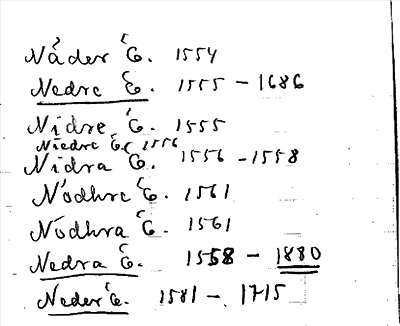 Nåder É. 1554
Nedre É. 1555 - 1686
Nidre É. 1555
Niedre É. 1556
Nidra É. 1556 - 1558
Nodhre É. 1561
Nodhra É. 1561
Nedra É. 1558 - 1880
Neder É. 1581 - 1715